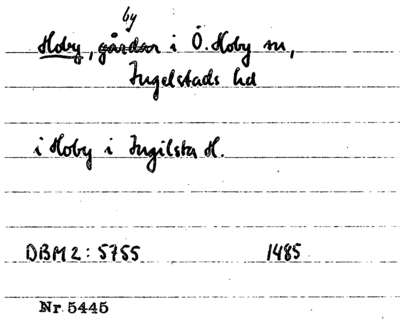 by
Hoby, gårdar i Ö. Hoby sn,
Ingelstads hd
i Hoby i Ingilsta H.
DBM 2: 5755 1485
Nr 5445